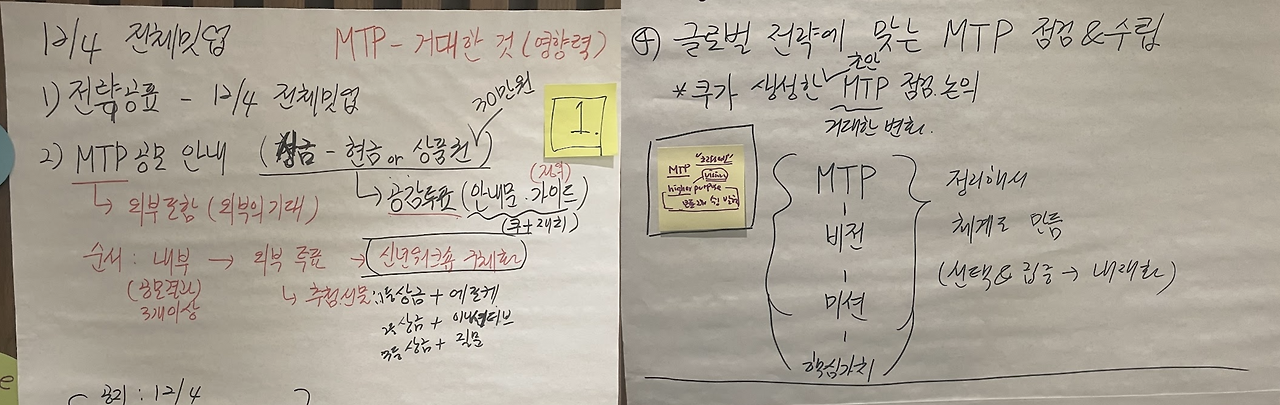 12/4 전체밋업
MTP - 거대한 것 (영향력)
1) 전략공표 - 12/4 전체밋업
30만원
1.
2) MTP 공모 안내 (상금 - 현금 or 상품권)
→ 외부포함 (외부의 기대)
→ 공감투표 (안내문. 가이드)
(쿠+재희)
순서 : 내부 → 외부 투표 → 신년워크숍 구체화
(공모결과)
3개이상
↳ 추첨선물 : 1등상금 + 에픽케
2등 상금 + 이니셔티브
3등 상금 + 질문
공지 : 12/4
④ 글로벌 전략에 맞는 MTP 점검 & 수립
초안
* 쿠가 생성한 MTP 점검. 논의
거대한 변화.
MTP
vision
higher purpose
MTP
-
비전
-
미션
-
핵심가치
정리해서
체계로 만듦
(선택 & 집중 → 내재화)
e